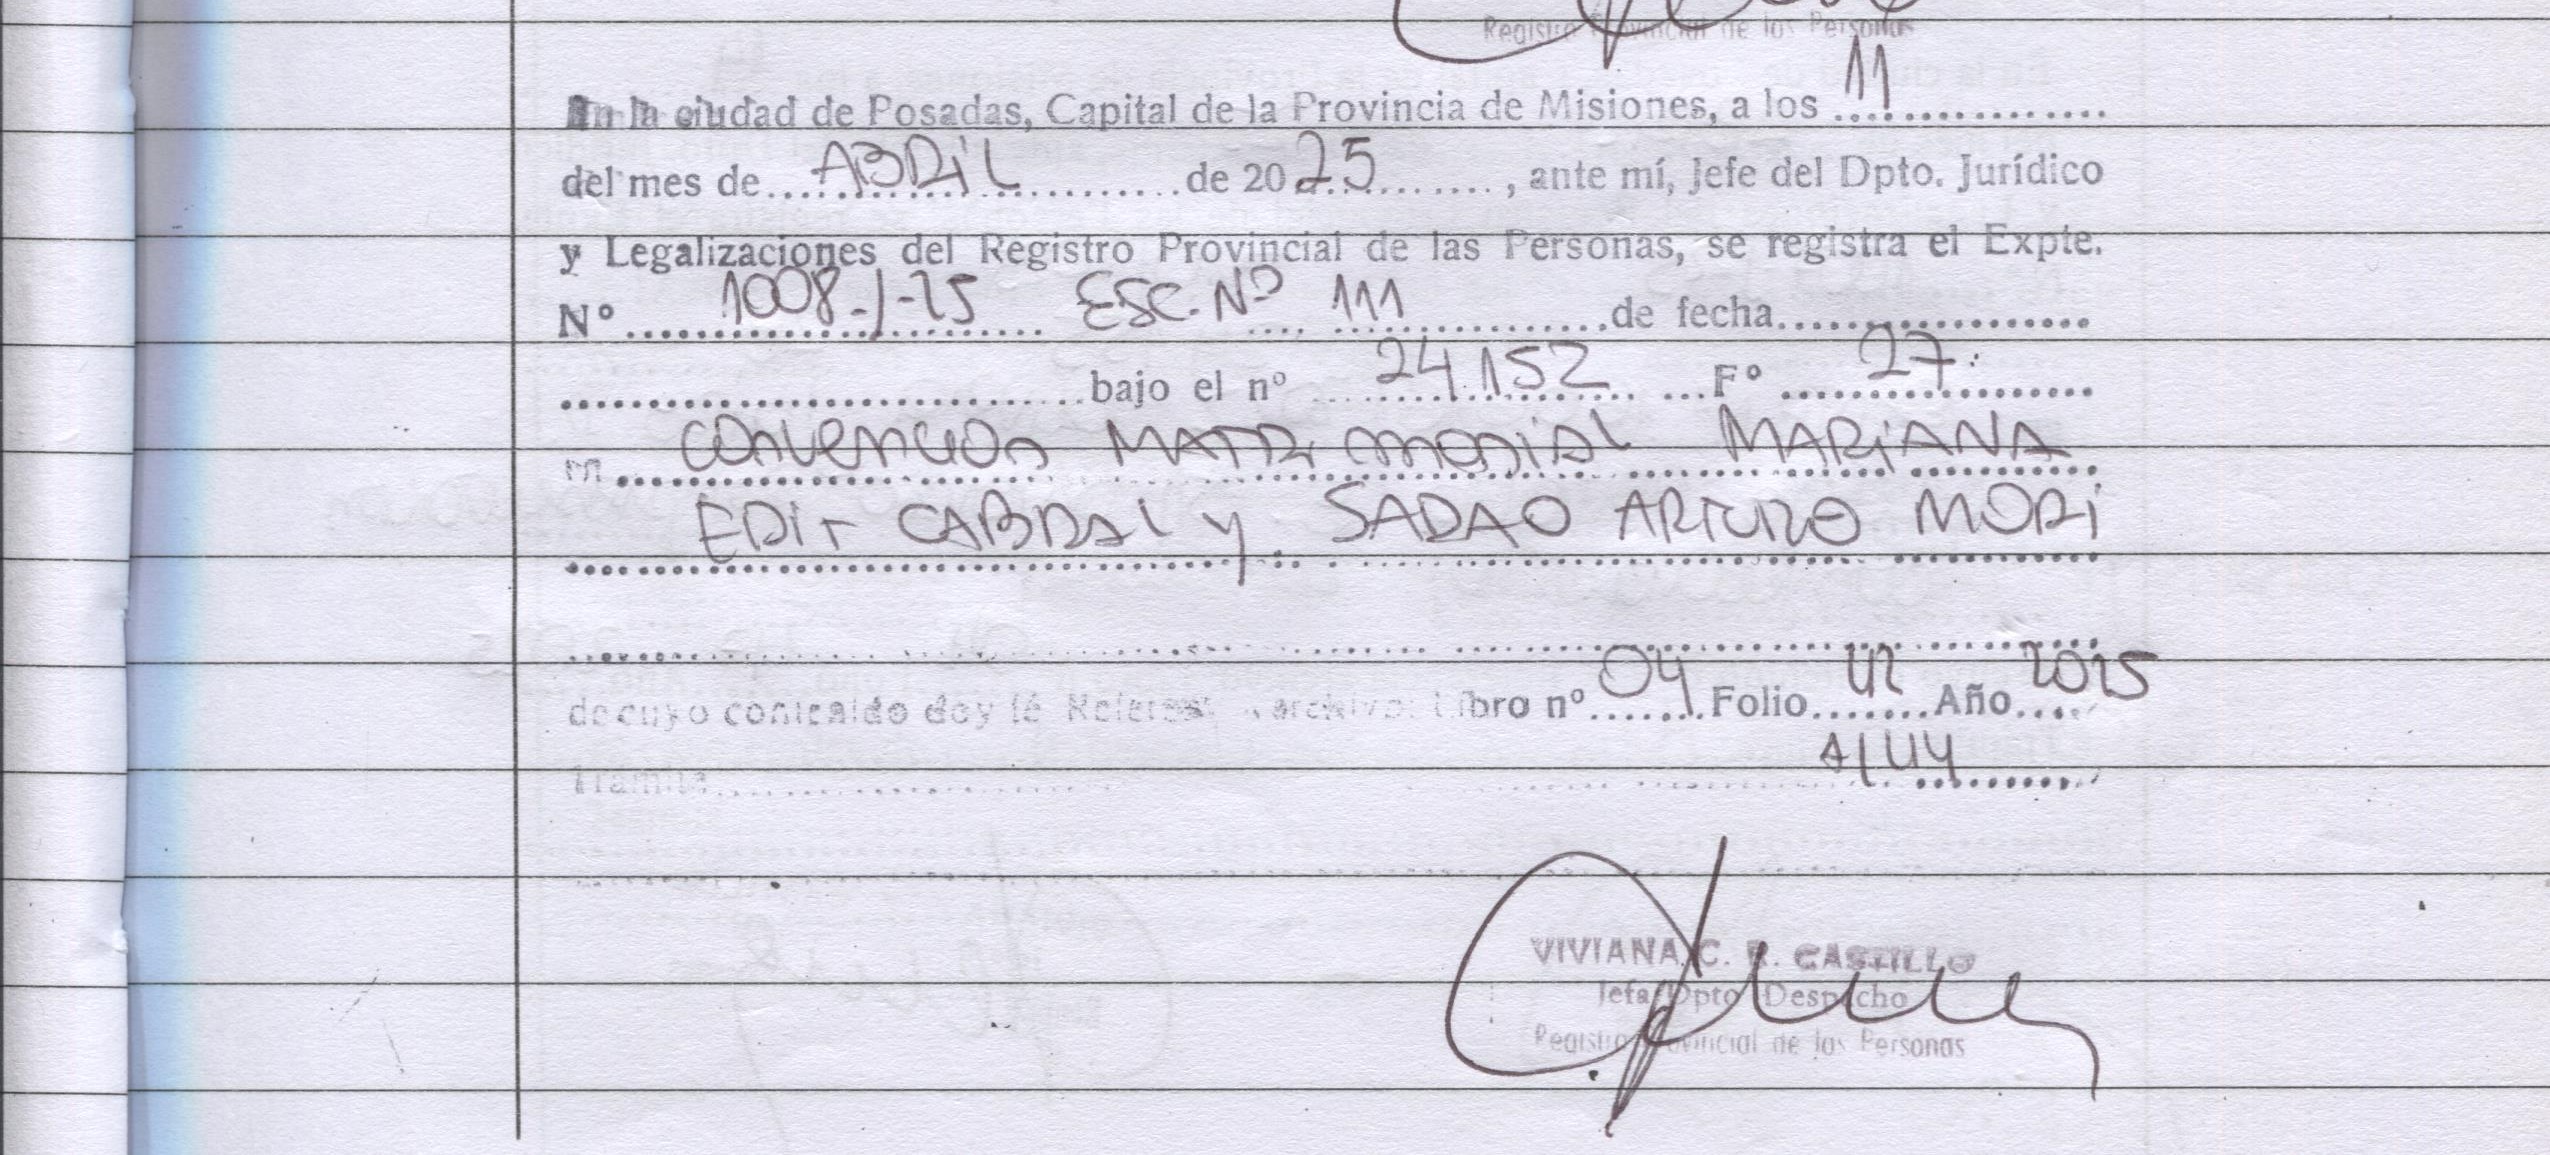 Registro Provincial de las Personas
En la ciudad de Posadas, Capital de la Provincia de Misiones, a los 11
del mes de ABRIL de 2025, ante mí, Jefe del Dpto. Jurídico
y Legalizaciones del Registro Provincial de las Personas, se registra el Expte.
Nº 1008-J-25 ESC. Nº 111 de fecha
bajo el nº 24.152 Fº 27
convencion MATRIMONIAL MARIANA
EDIT CABRAL y SADAO ARTURO MORI
de cuyo contenido doy fé archivo: Libro nº 04 Folio 42 Año 2025
Trámite A/44
VIVIANA C. R. CASTILLO
Jefa Dpto. Despacho
Registro Provincial de las Personas